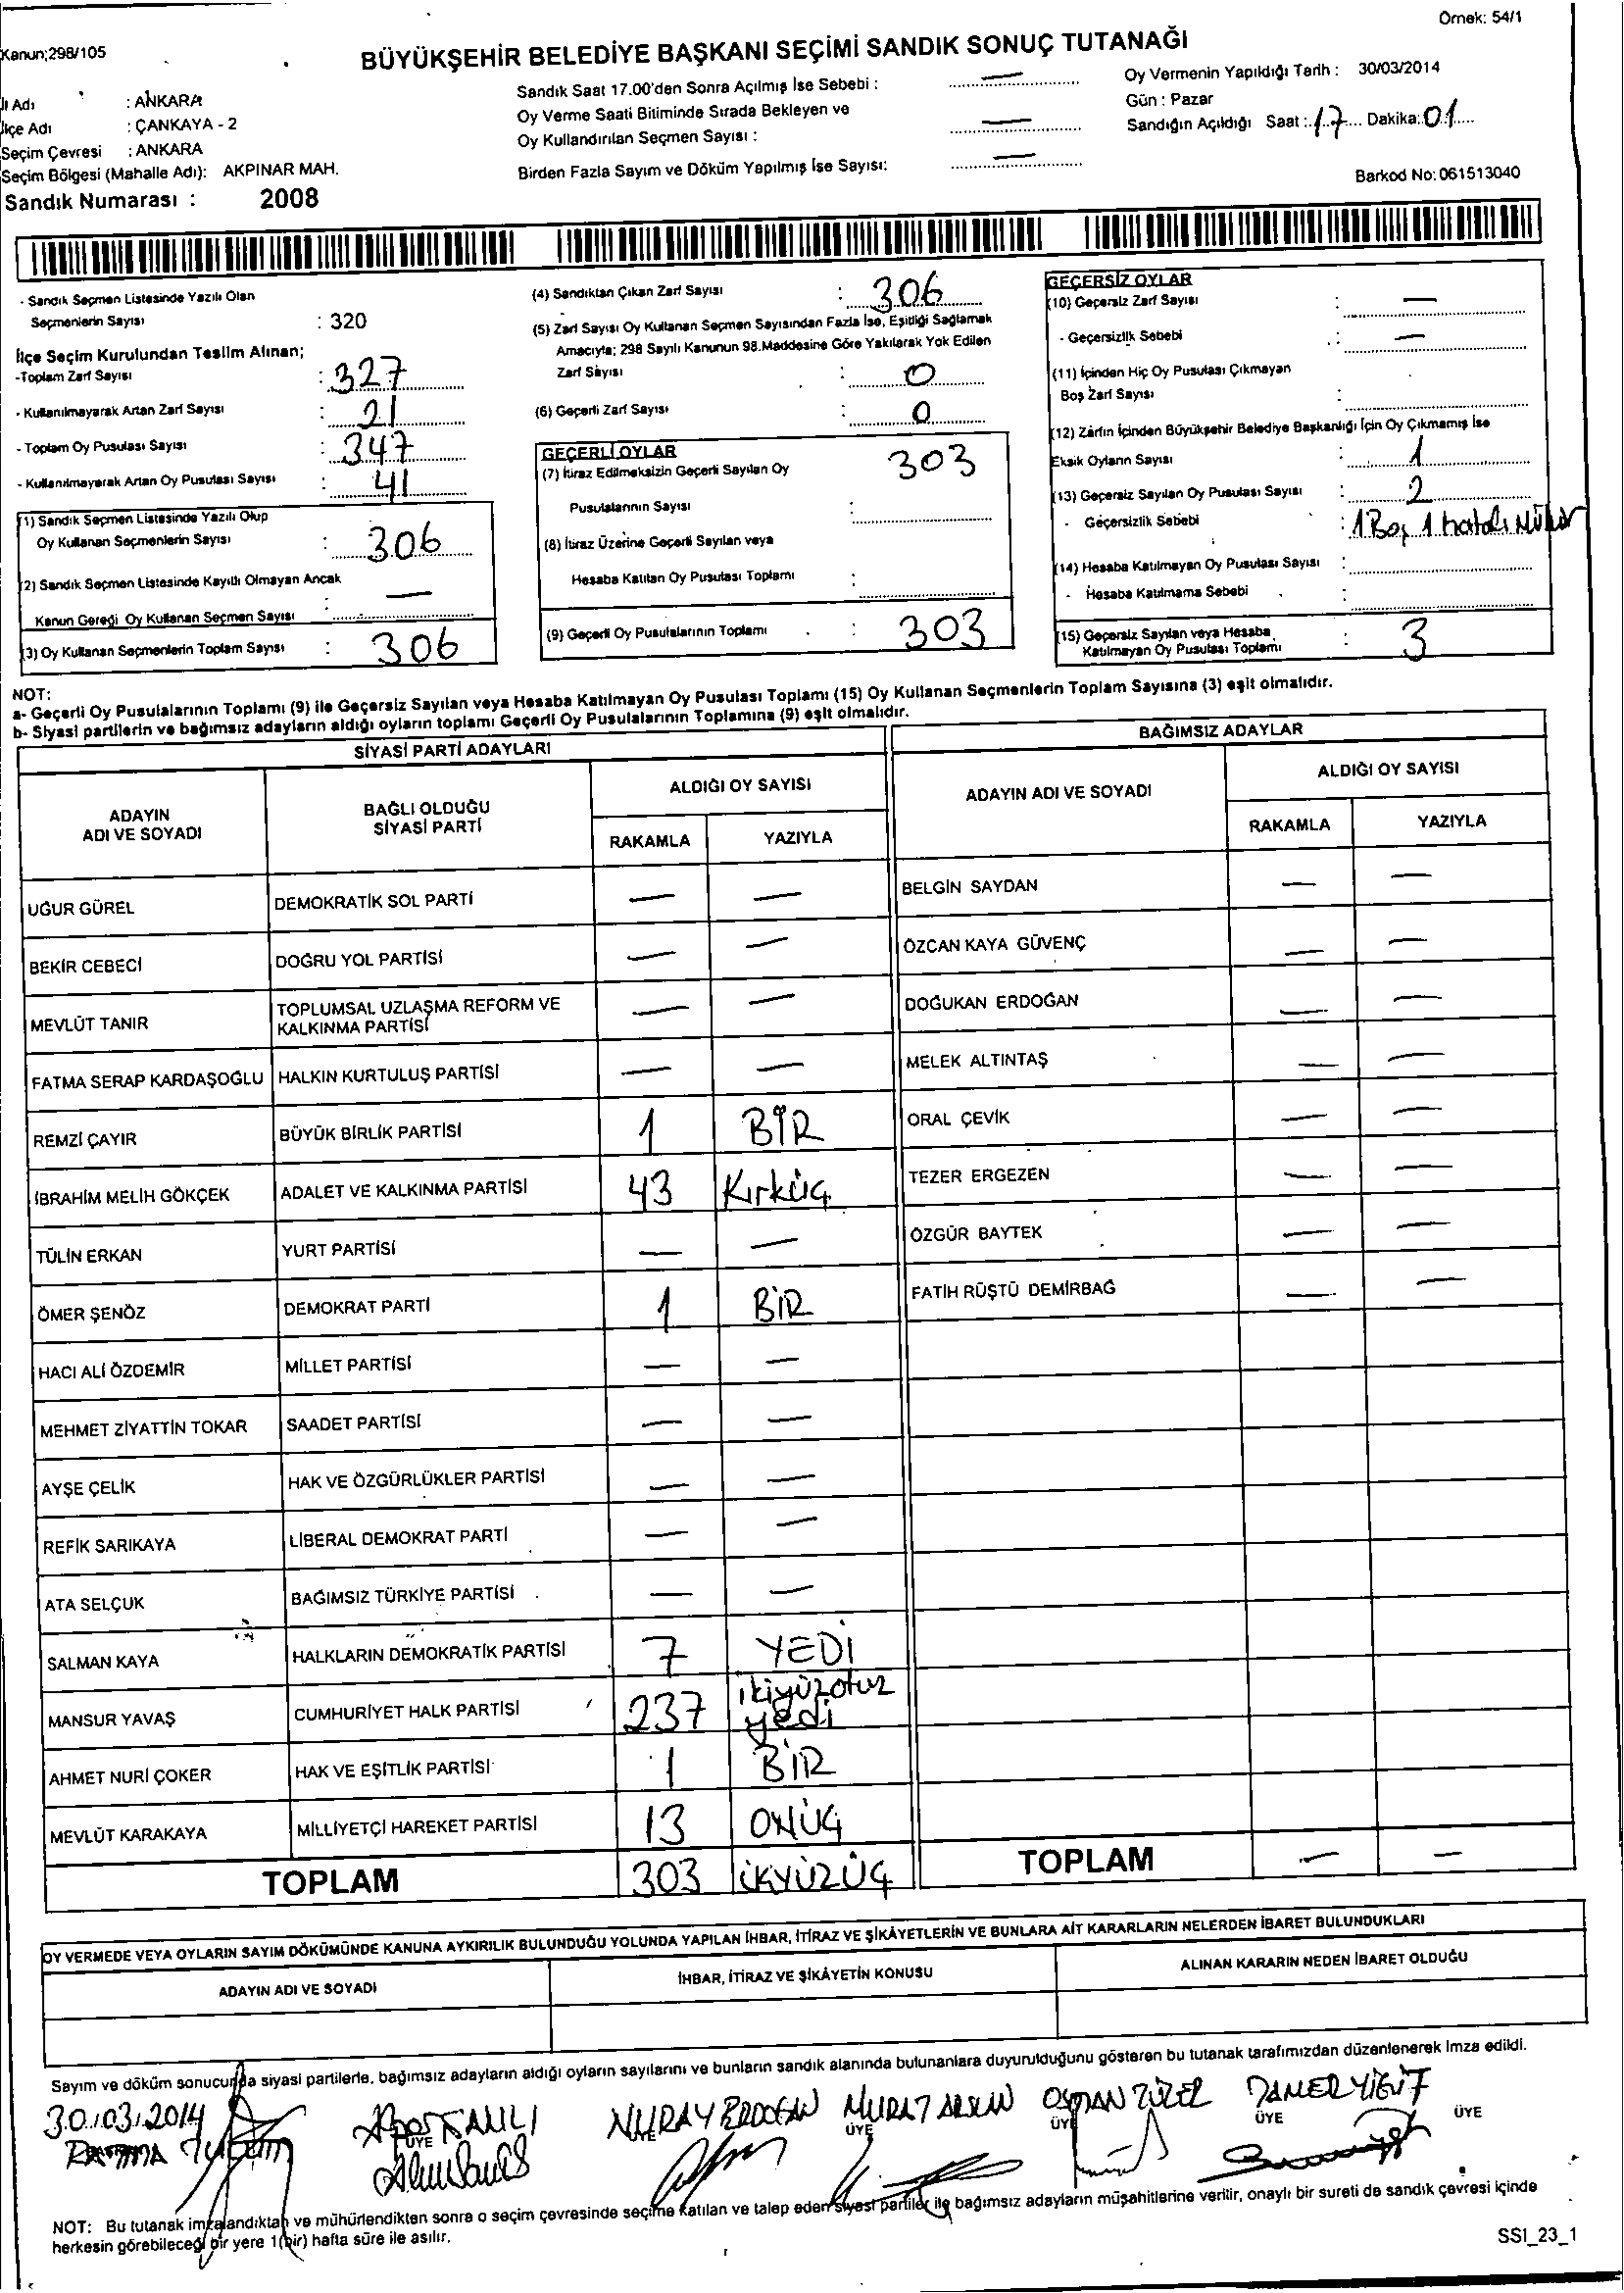 Örnek: 54/1
Kanun;298/105
BÜYÜKŞEHİR BELEDİYE BAŞKANI SEÇİMİ SANDIK SONUÇ TUTANAĞI
İl Adı : ANKARA
İlçe Adı : ÇANKAYA - 2
Seçim Çevresi : ANKARA
Seçim Bölgesi (Mahalle Adı): AKPINAR MAH.
Sandık Numarası : 2008
Sandık Saat 17.00'den Sonra Açılmış İse Sebebi : —
Oy Verme Saati Bitiminde Sırada Bekleyen ve
Oy Kullandırılan Seçmen Sayısı : —
Birden Fazla Sayım ve Döküm Yapılmış İse Sayısı: —
Oy Vermenin Yapıldığı Tarih : 30/03/2014
Gün : Pazar
Sandığın Açıldığı Saat : 17 Dakika: 01
Barkod No: 061513040
- Sandık Seçmen Listesinde Yazılı Olan
Seçmenlerin Sayısı : 320
İlçe Seçim Kurulundan Teslim Alınan;
-Toplam Zarf Sayısı : 327
- Kullanılmayarak Artan Zarf Sayısı : 21
- Toplam Oy Pusulası Sayısı : 347
- Kullanılmayarak Artan Oy Pusulası Sayısı : 41
(1) Sandık Seçmen Listesinde Yazılı Olup
Oy Kullanan Seçmenlerin Sayısı : 306
(2) Sandık Seçmen Listesinde Kayıtlı Olmayan Ancak
Kanun Gereği Oy Kullanan Seçmen Sayısı : —
(3) Oy Kullanan Seçmenlerin Toplam Sayısı : 306
(4) Sandıktan Çıkan Zarf Sayısı : 306
(5) Zarf Sayısı Oy Kullanan Seçmen Sayısından Fazla İse, Eşitliği Sağlamak
Amacıyla; 298 Sayılı Kanunun 98.Maddesine Göre Yakılarak Yok Edilen
Zarf Sayısı : 0
(6) Geçerli Zarf Sayısı : 0
GEÇERLİ OYLAR
(7) İtiraz Edilmeksizin Geçerli Sayılan Oy 303
Pusulalarının Sayısı :
(8) İtiraz Üzerine Geçerli Sayılan veya
Hesaba Katılan Oy Pusulası Toplamı :
(9) Geçerli Oy Pusulalarının Toplamı : 303
GEÇERSİZ OYLAR
(10) Geçersiz Zarf Sayısı : —
- Geçersizlik Sebebi : —
(11) İçinden Hiç Oy Pusulası Çıkmayan
Boş Zarf Sayısı :
(12) Zarfın İçinden Büyükşehir Belediye Başkanlığı İçin Oy Çıkmamış İse
Eksik Oyların Sayısı : 1
(13) Geçersiz Sayılan Oy Pusulası Sayısı : 2
- Geçersizlik Sebebi : 1 Boş 1 hatalı Mühür
(14) Hesaba Katılmayan Oy Pusulası Sayısı :
- Hesaba Katılmama Sebebi :
(15) Geçersiz Sayılan veya Hesaba
Katılmayan Oy Pusulası Toplamı : 3
NOT:
a- Geçerli Oy Pusulalarının Toplamı (9) ile Geçersiz Sayılan veya Hesaba Katılmayan Oy Pusulası Toplamı (15) Oy Kullanan Seçmenlerin Toplam Sayısına (3) eşit olmalıdır.
b- Siyasi partilerin ve bağımsız adayların aldığı oyların toplamı Geçerli Oy Pusulalarının Toplamına (9) eşit olmalıdır.
SİYASİ PARTİ ADAYLARI
ADAYIN ADI VE SOYADI BAĞLI OLDUĞU SİYASİ PARTİ ALDIĞI OY SAYISI
RAKAMLA YAZIYLA
UĞUR GÜREL DEMOKRATİK SOL PARTİ — —
BEKİR CEBECİ DOĞRU YOL PARTİSİ — —
MEVLÜT TANIR TOPLUMSAL UZLAŞMA REFORM VE KALKINMA PARTİSİ — —
FATMA SERAP KARDAŞOĞLU HALKIN KURTULUŞ PARTİSİ — —
REMZİ ÇAYIR BÜYÜK BİRLİK PARTİSİ 1 BİR
İBRAHİM MELİH GÖKÇEK ADALET VE KALKINMA PARTİSİ 43 Kırküç
TÜLİN ERKAN YURT PARTİSİ — —
ÖMER ŞENÖZ DEMOKRAT PARTİ 1 BİR
HACI ALİ ÖZDEMİR MİLLET PARTİSİ — —
MEHMET ZİYATTİN TOKAR SAADET PARTİSİ — —
AYŞE ÇELİK HAK VE ÖZGÜRLÜKLER PARTİSİ — —
REFİK SARIKAYA LİBERAL DEMOKRAT PARTİ — —
ATA SELÇUK BAĞIMSIZ TÜRKİYE PARTİSİ — —
SALMAN KAYA HALKLARIN DEMOKRATİK PARTİSİ 7 YEDİ
MANSUR YAVAŞ CUMHURİYET HALK PARTİSİ 237 ikiyüzotuz yedi
AHMET NURİ ÇOKER HAK VE EŞİTLİK PARTİSİ 1 BİR
MEVLÜT KARAKAYA MİLLİYETÇİ HAREKET PARTİSİ 13 ONÜÇ
TOPLAM 303 İKYÜZÜÇ
BAĞIMSIZ ADAYLAR
ADAYIN ADI VE SOYADI ALDIĞI OY SAYISI
RAKAMLA YAZIYLA
BELGİN SAYDAN — —
ÖZCAN KAYA GÜVENÇ — —
DOĞUKAN ERDOĞAN — —
MELEK ALTINTAŞ — —
ORAL ÇEVİK — —
TEZER ERGEZEN — —
ÖZGÜR BAYTEK — —
FATİH RÜŞTÜ DEMİRBAĞ — —
TOPLAM — —
OY VERMEDE VEYA OYLARIN SAYIM DÖKÜMÜNDE KANUNA AYKIRILIK BULUNDUĞU YOLUNDA YAPILAN İHBAR, İTİRAZ VE ŞİKÂYETLERİN VE BUNLARA AİT KARARLARIN NELERDEN İBARET BULUNDUKLARI
ADAYIN ADI VE SOYADI İHBAR, İTİRAZ VE ŞİKÂYETİN KONUSU ALINAN KARARIN NEDEN İBARET OLDUĞU
Sayım ve döküm sonucunda siyasi partilerle, bağımsız adayların aldığı oyların sayılarını ve bunların sandık alanında bulunanlara duyurulduğunu gösteren bu tutanak tarafımızdan düzenlenerek imza edildi.
30.03.2014 NURAY ERDOĞAN MURAT OSMAN TANER YİĞİT
ÜYE ÜYE ÜYE ÜYE ÜYE ÜYE
NOT: Bu tutanak imzalandıktan ve mühürlendikten sonra o seçim çevresinde seçime katılan ve talep eden siyasi partiler ile bağımsız adayların müşahitlerine verilir, onaylı bir sureti de sandık çevresi içinde
herkesin görebileceği bir yere 1(bir) hafta süre ile asılır.
SSI_23_1